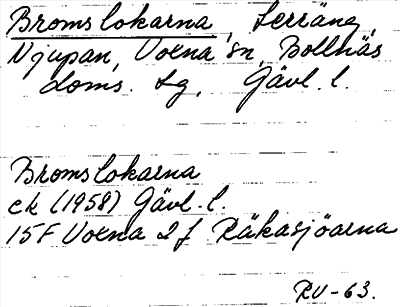 Bromslokarna, Terräng,
Njupan, Voxna sn, Bollnäs
doms. sg, Gävl. l.
Bromslokarna
ek (1958) Gävl. l.
15F Voxna 2 f Räkasjöarna
RU-63.